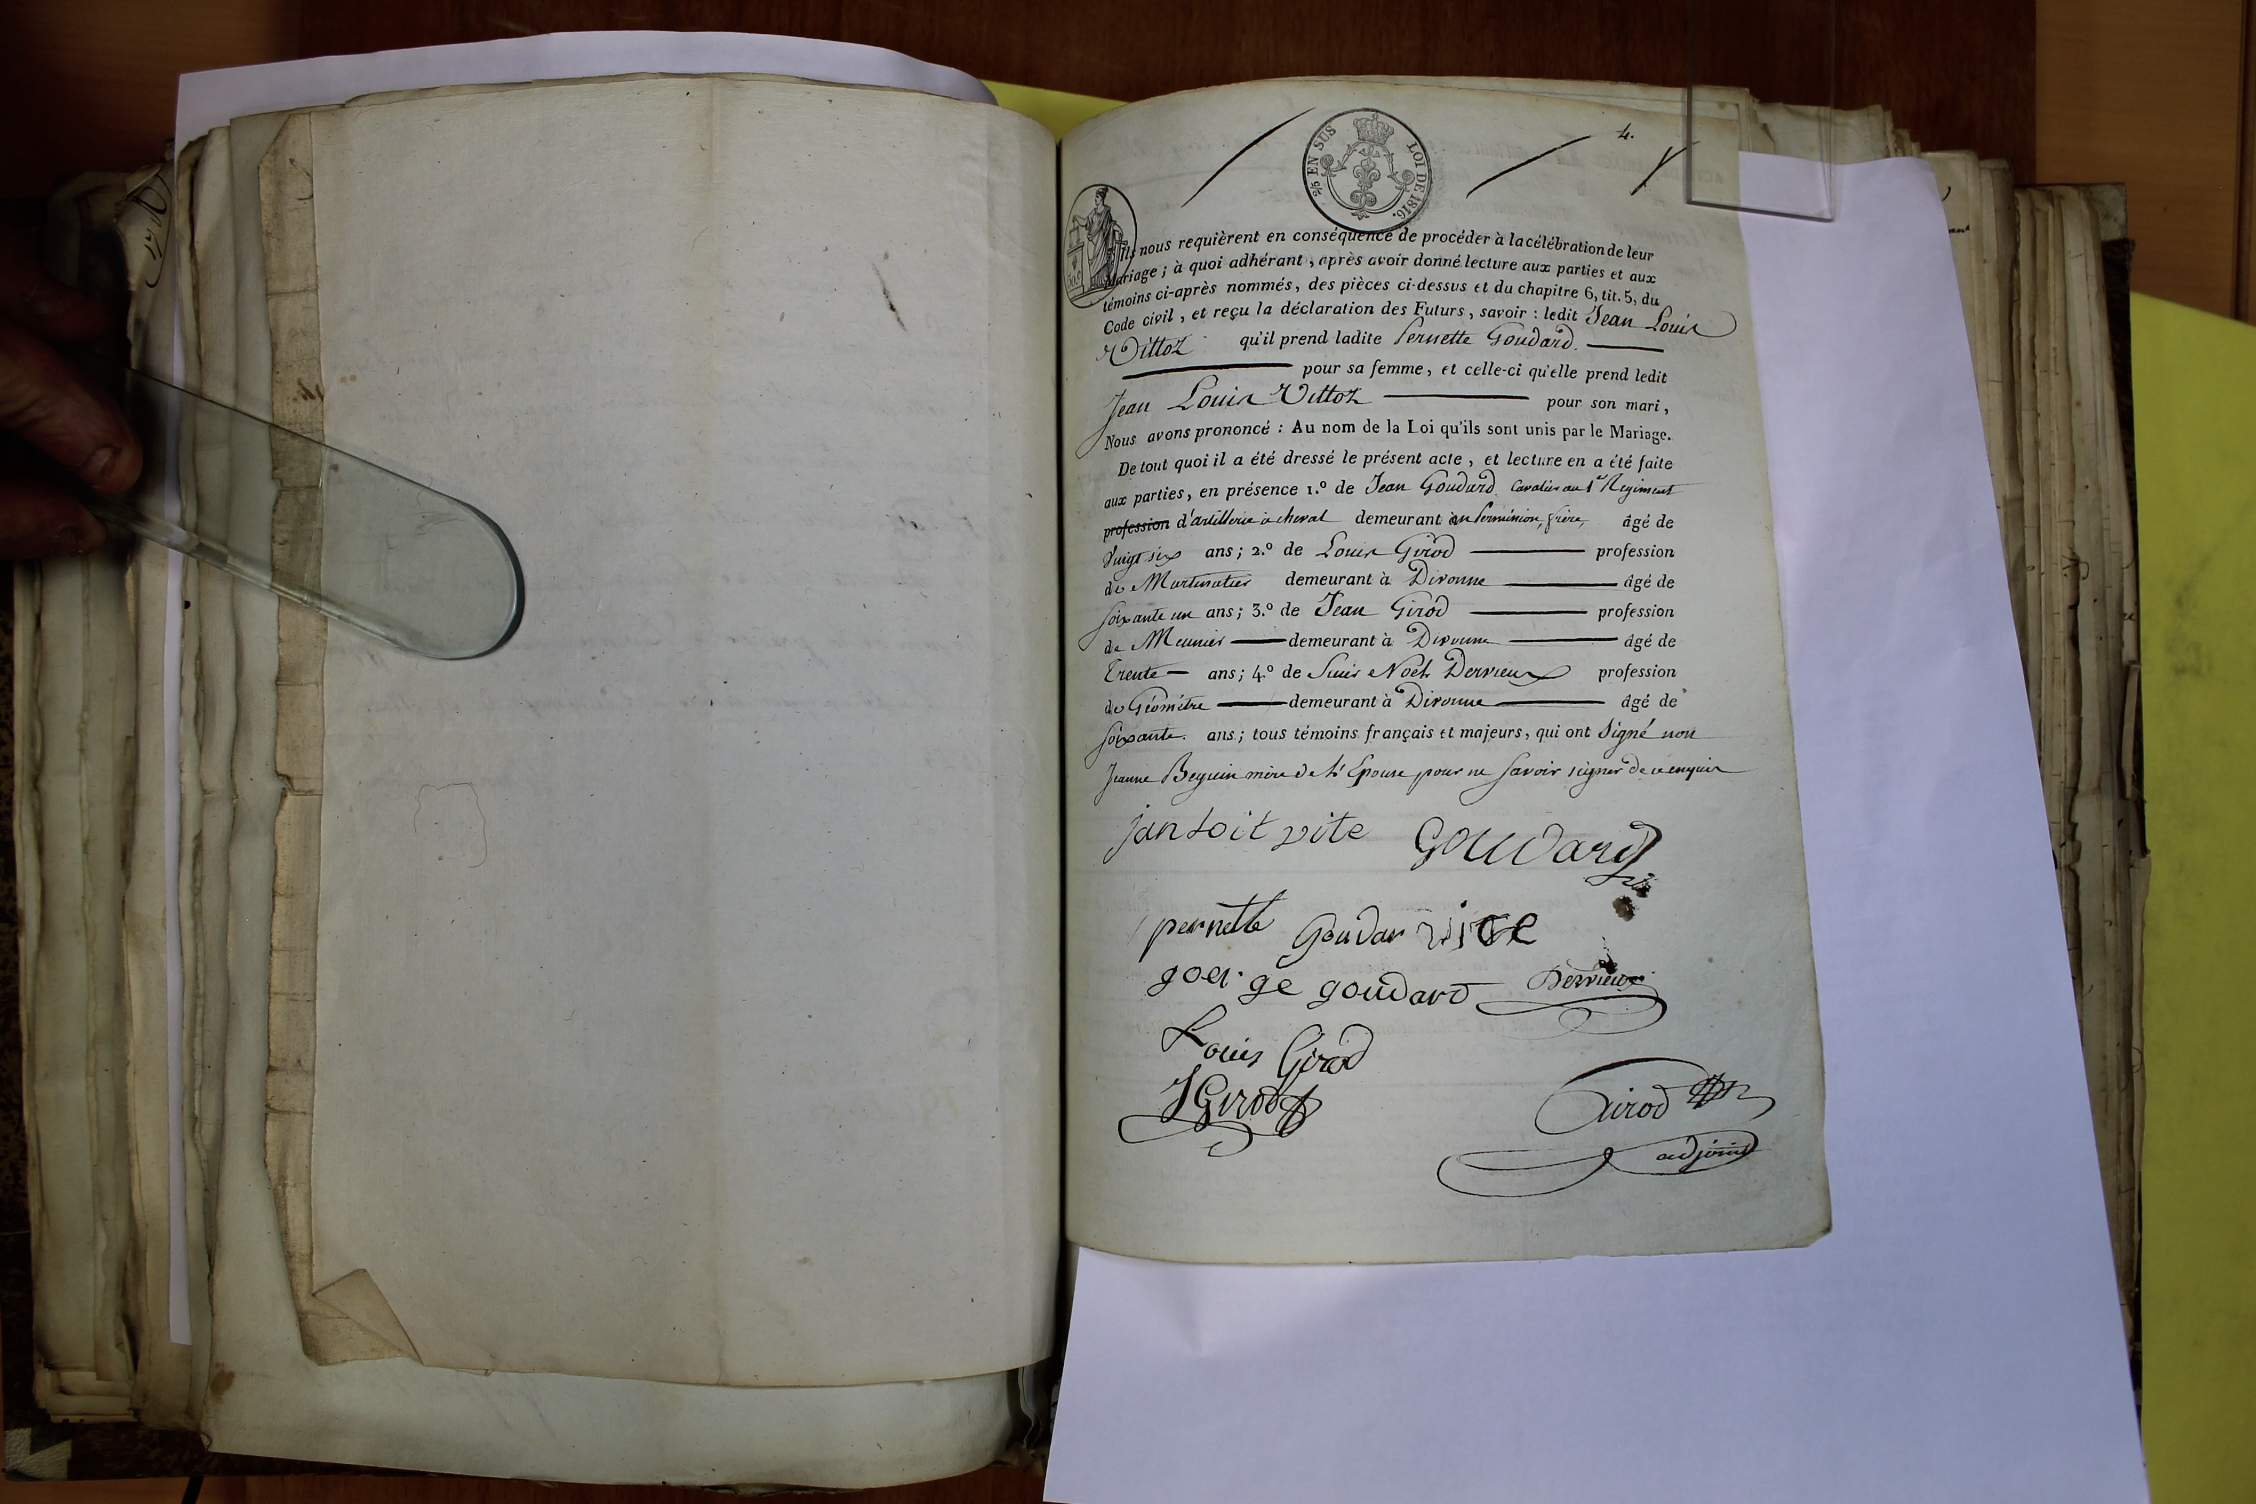 4.
2/5 EN SUS LOI DE 1816.
50 c
Ils nous requièrent en conséquence de procéder à la célébration de leur
Mariage ; à quoi adhérant, après avoir donné lecture aux parties et aux
témoins ci-après nommés, des pièces ci-dessus et du chapitre 6, tit. 5, du
Code civil, et reçu la déclaration des Futurs, savoir : ledit Jean Louis
Vittoz qu'il prend ladite Pernette Goudard.
pour sa femme, et celle-ci qu'elle prend ledit
Jean Louis Vittoz pour son mari,
Nous avons prononcé : Au nom de la Loi qu'ils sont unis par le Mariage.
De tout quoi il a été dressé le présent acte, et lecture en a été faite
aux parties, en présence 1.° de Jean Goudard Cavalier au 1er Regiment
profession d'artillerie à cheval demeurant en permission, frère, âgé de
Vingt six ans ; 2.° de Louis Girod profession
de demeurant à Divonne âgé de
soixante un ans ; 3.° de Jean Girod profession
de Meunier demeurant à Divonne âgé de
Trente ans ; 4.° de Noël Dervieux profession
de Géomètre demeurant à Divonne âgé de
soixante. ans ; tous témoins français et majeurs, qui ont signé non
Jeanne Beguin mère de l'Epouse pour ne savoir signer de ce enquis
jan loit vite Goudard
pernette Goudar vite
goerge goudard Dervieux
Louis Girod
J Girod
Girod
adjoint